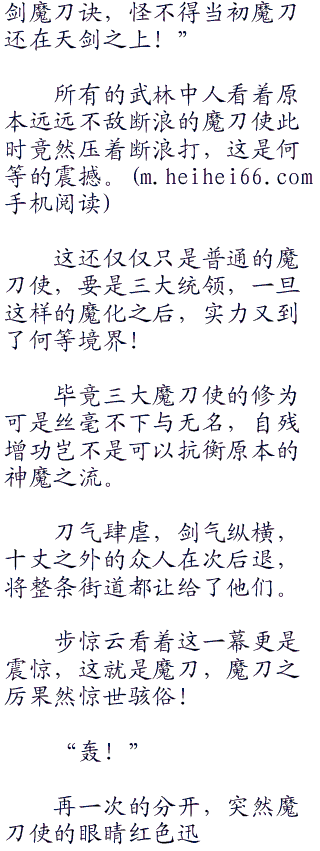 剑魔刀诀，怪不得当初魔刀
还在天剑之上！”
所有的武林中人看着原
本远远不敌断浪的魔刀使此
时竟然压着断浪打，这是何
等的震撼。(m.heihei66.com
手机阅读)
这还仅仅只是普通的魔
刀使，要是三大统领，一旦
这样的魔化之后，实力又到
了何等境界！
毕竟三大魔刀使的修为
可是丝毫不下与无名，自残
增功岂不是可以抗衡原本的
神魔之流。
刀气肆虐，剑气纵横，
十丈之外的众人在次后退，
将整条街道都让给了他们。
步惊云看着这一幕更是
震惊，这就是魔刀，魔刀之
厉果然惊世骇俗！
“轰！”
再一次的分开，突然魔
刀使的眼睛红色迅